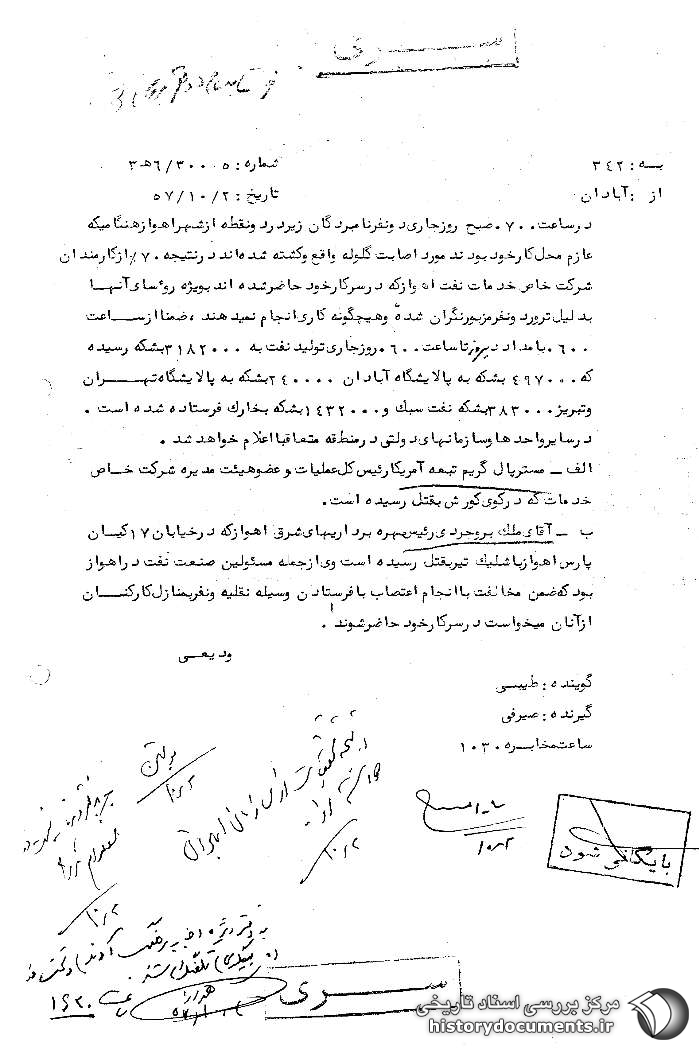 سری
به : ۳۴۲
شماره : ۳۰۰۰۵/۶هـ۳
از : آبادان
تاریخ : ۵۷/۱۰/۲
در ساعت ۰۷۰۰ صبح روزجاری دونفرنامبردگان زیردر دونقطه ازشهر اهوازهنگامیکه
عازم محل کارخود بودند مورد اصابت گلوله واقع وکشته شده‌اند درنتیجه ۷۰٪ ازکارمندان
شرکت خاص خدمات نفت اهوازکه درسرکارخود حاضرشده اند بویژه روسای آنها
بدلیل ترور دونفرمزبورنگران شده وهیچگونه کاری انجام نمیدهند ، ضمنا ازساعت
۰۶۰۰ بامداد دیروز تاساعت ۰۶۰۰ روزجاری تولید نفت به ۳۱۸۲۰۰۰ بشکه رسیده
که ۴۹۷۰۰۰ بشکه به پالایشگاه آبادان ۲۴۰۰۰۰ بشکه به پالایشگاه تهران
وتبریز ۳۸۳۰۰۰ بشکه نفت سبک و ۱۴۳۲۰۰۰ بشکه بخارک فرستاده شده است .
درسایر واحدها وسازمانهای دولتی درمنطقه متعاقبا اعلام خواهد شد .
الف ـ مسترپال گریم تبعه آمریکا رئیس کل عملیات و عضوهیئت مدیره شرکت خاص
خدمات که درکوی کورش بقتل رسیده است.
ب ـ آقای ملک بروجردی رئیس بهره برداریهای شرق اهوازکه درخیابان ۱۷ کیان
پارس اهوازباشلیک تیربقتل رسیده است وی ازجمله مسئولین صنعت نفت دراهواز
بود که ضمن مخالفت باانجام اعتصاب بافرستادن وسیله نقلیه ونفربمنازل کارکنان
ازآنان میخواست درسرکارخود حاضرشوند .
ودیعی
گوینده : طبیبی
گیرنده : صیرفی
ساعت مخابره ۱۰۳۰
۱۰/۲
۱۰/۲
۱۰/۲
۱۰/۲
بایگانی شود
ساعت ۱۶۳۰
سری
مرکز بررسی اسناد تاریخی
historydocuments.ir